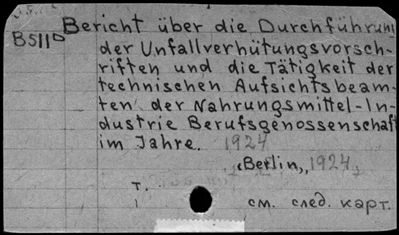 Bericht über die Durchführung
B511D
der Unfallverhütungsvorsch-
riften und die Tätigkeit der
technischen Aufsichtsbeam-
ten der Nahrungsmittel-In-
dustrie Berufsgenossenschaft
im Jahre. 1924
Berlin, 1924
т.
см. след. карт.